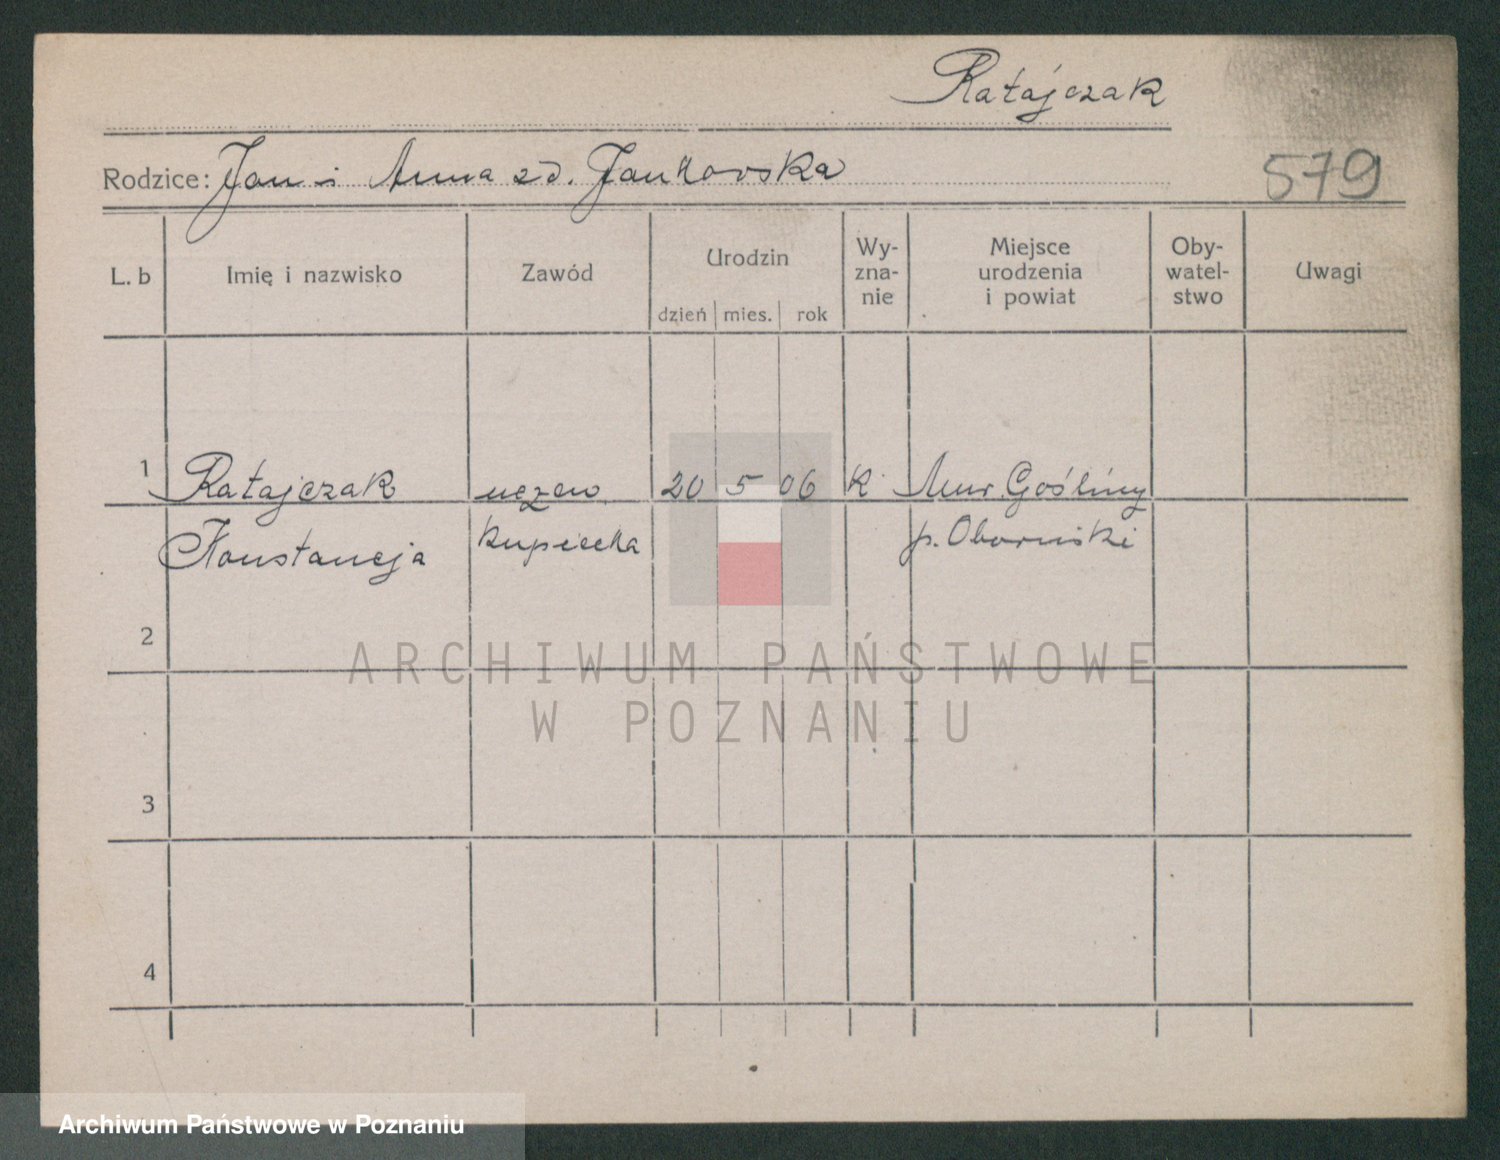 Ratajczak
Rodzice: Jan i Anna zd. Jankowska
579
L. b
Imię i nazwisko
Zawód
Urodzin
dzień mies. rok
Wy-
zna-
nie
Miejsce
urodzenia
i powiat
Oby-
watel-
stwo
Uwagi
1 Ratajczak uczen 20 5 06 k Mur. Gośliny
Konstancja kupiecka p. Obornicki
2
3
4
ARCHIWUM PAŃSTWOWE
W POZNANIU
Archiwum Państwowe w Poznaniu